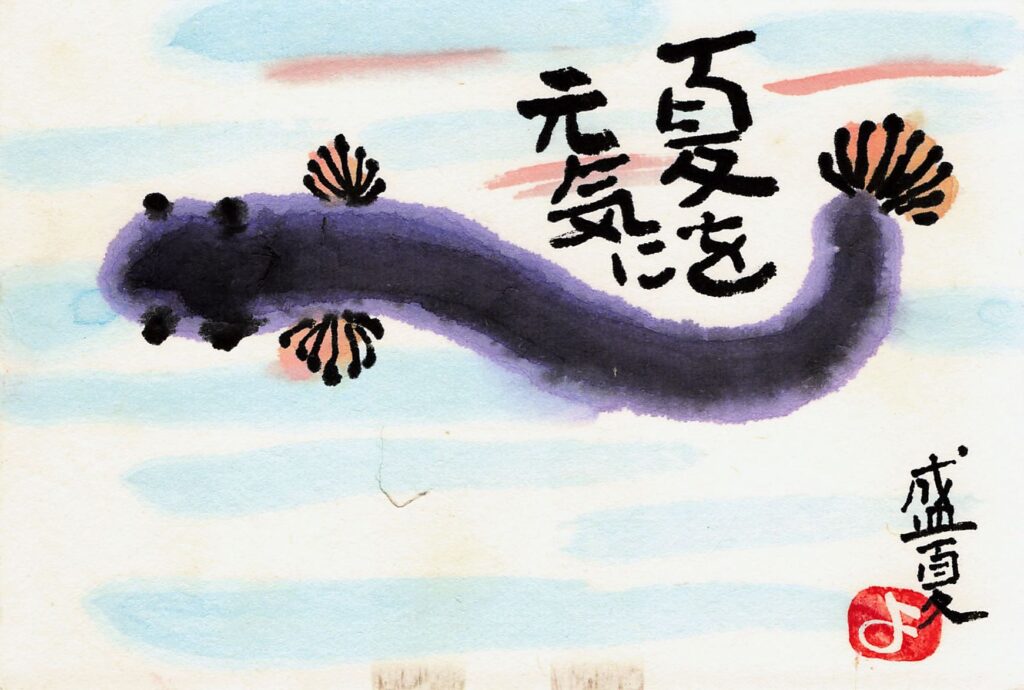 夏を
元気に
盛夏
よ